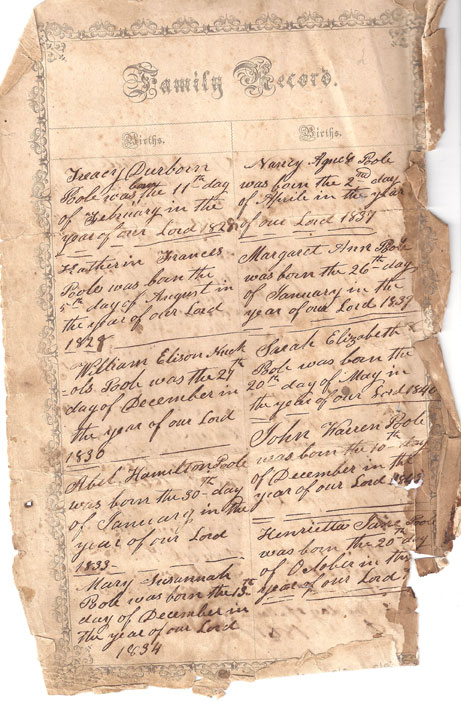 Family Record.
Births.
Treacy Durborn
Poole was born the 11th day
of February in the
year of our Lord 1828
Katherin Frances
Poole was born the
5th day of August in
the year of our Lord
1828
William Elison Nuck
-ols Poole was the 27th
day of December in
the year of our Lord
1830
Abel Hamilton Poole
was born the 30th day
of January in the
year of our Lord
1833-
Mary Susannah
Poole was born the 13th
day of December in
the year of our Lord
1834
Births.
Nancy Agnes Poole
was born the 2nd day
of Aprile in the year
of our Lord 1837
Margaret Ann Poole
was born the 26th day
of January in the
year of our Lord 1839
Sarah Elizabeth
Poole was born the
20th day of May in
the year of our Lord 1840
John Warren Poole
was born the 10th day
of December in the
year of our Lord
Henrietta Jane Poole
was born the 20th day
of October in the
year of our Lord